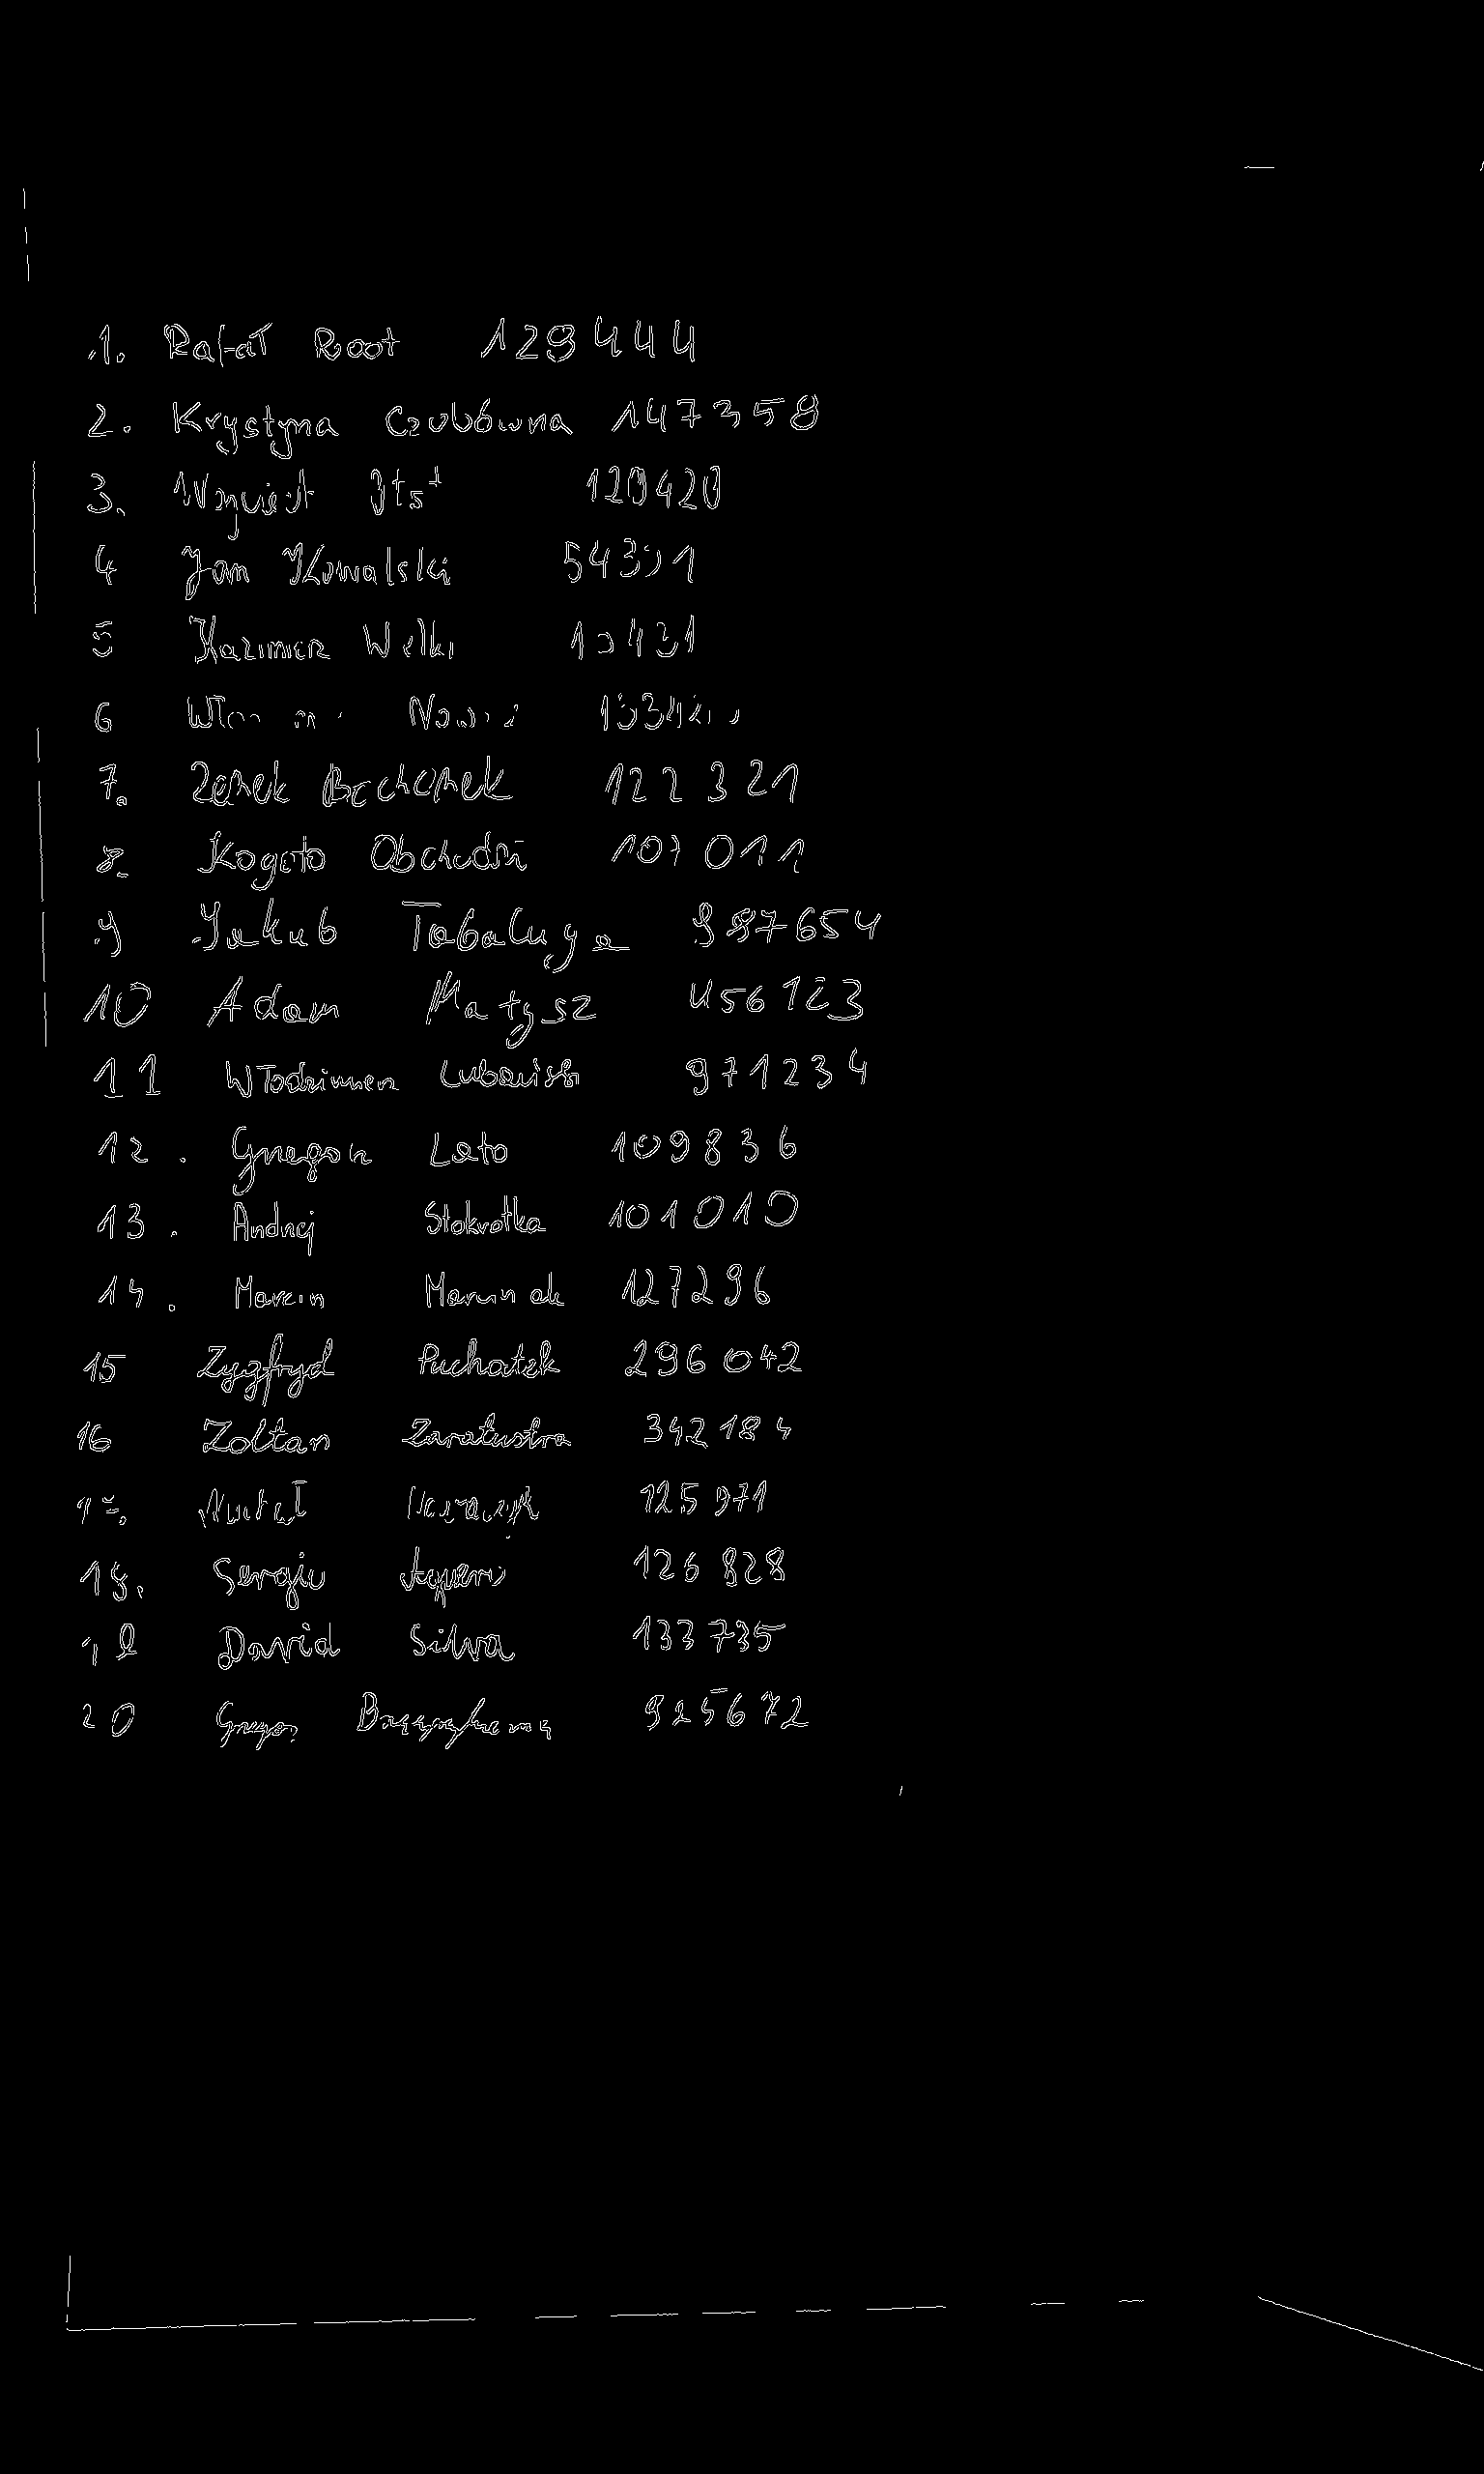 1. Rafał Root 129444
2. Krystyna Czubówna 147358
3. 129420
4 Jan Kowalski
5 Kazimierz Welki
6
7. Zenek Bochenek 122321
8. Kogoto Obchodzi 107011
9 Jakub Tabaluga 987654
10 Adam Matysz 456123
11 Włodzimierz Lubański 971234
12. Grzegorz Lato 109836
13. Andrzej Stokrotka 101010
14. Marcin Marciniak 127296
15 Zygfryd Puchatek 296042
16 Zoltan Zaratustra 342184
17. 125971
18. Sergio Aguero 126828
19 David Silva 133735
20 925672